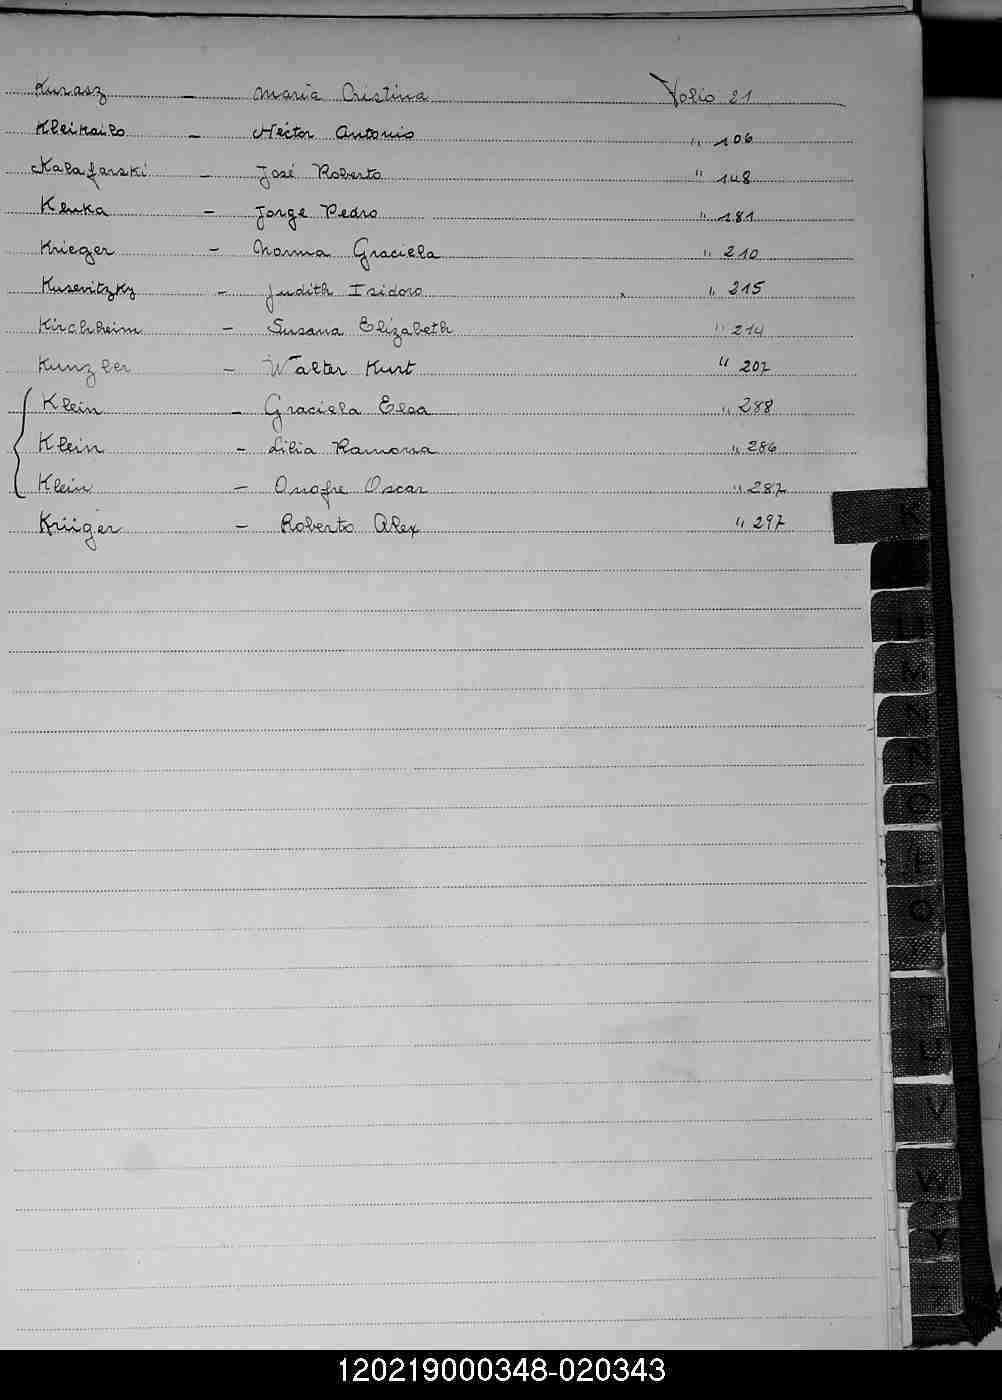 Kurasz - Maria Cristina Folio 21
Kleikailo - Héctor Antonio " 106
Kalafarski - José Roberto " 148
Kluka - Jorge Pedro " 181
Krieger - Norma Graciela " 210
Kusevitzky - Judith Isidoro " 215
Kirchheim - Susana Elizabeth " 214
Kunzler - Walter Kurt " 207
Klein - Graciela Elsa " 288
Klein - Lilia Ramona " 286
Klein - Onofre Oscar " 287
Krüger - Roberto Alex " 297
K
L
M
N
N
O
Q
T
U
V
W
Y
120219000348-020343